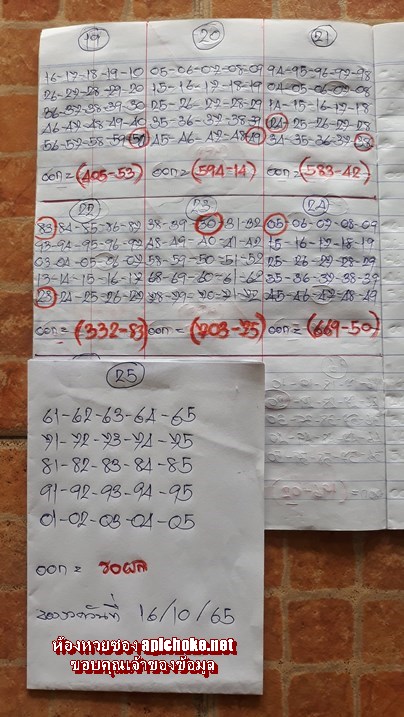 19
16-17-18-19-10
26-27-28-29-20
36-37-38-39-30
46-47-48-49-40
56-57-58-59-50
ออก = (405-53)
20
05-06-07-08-09
15-16-17-18-19
25-26-27-28-29
35-36-37-38-39
45-46-47-48-49
ออก = (594-14)
21
94-95-96-97-98
04-05-06-07-08
14-15-16-17-18
24-25-26-27-28
34-35-36-37-38
ออก = (583-42)
22
83-84-85-86-87
93-94-95-96-97
03-04-05-06-07
13-14-15-16-17
23-24-25-26-27
ออก = (332-83)
23
38-39-30-31-32
48-49-40-41-42
58-59-50-51-52
68-69-60-61-62
78-79-70-71-72
ออก = (703-75)
24
05-06-07-08-09
15-16-17-18-19
25-26-27-28-29
35-36-37-38-39
45-46-47-48-49
ออก = (669-50)
25
61-62-63-64-65
71-72-73-74-75
81-82-83-84-85
91-92-93-94-95
01-02-03-04-05
ออก = รอผล
งวดวันที่ 16/10/65
ห้องหวยซอง apichoke.net
ขอบคุณเจ้าของข้อมูล